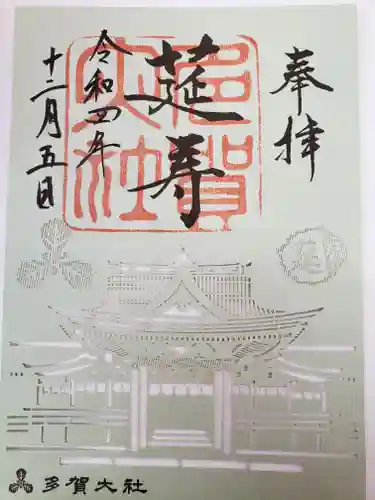 奉拝
延寿
多賀大社
令和四年
十二月五日
多賀大社